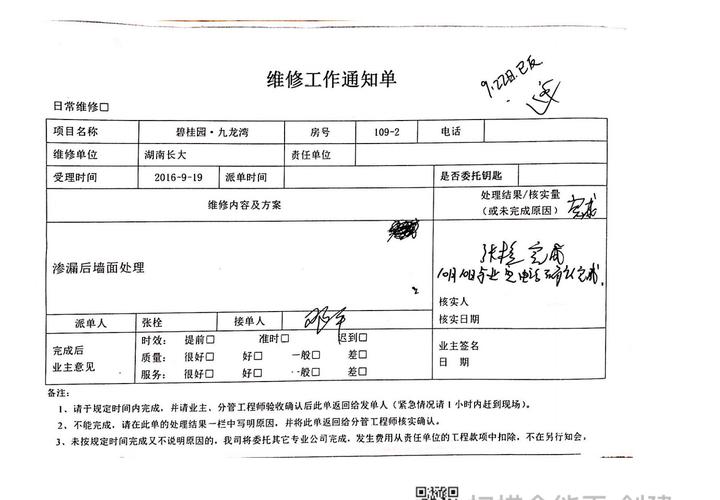 维修工作通知单
9.22日.已反
日常维修□
项目名称 碧桂园·九龙湾 房号 109-2 电话
维修单位 湖南长大 责任单位
受理时间 2016-9-19 派单时间 是否委托钥匙
维修内容及方案 处理结果/核实量
(或未完成原因) 完成
渗漏后墙面处理
张栓 完成
10月10日 业主电话 完成.
核实人
核实日期
派单人 张栓 接单人
完成后
业主意见
时效: 提前□ 准时□ 迟到□
质量: 很好□ 好□ 一般□ 差□
服务: 很好□ 好□ 一般□ 差□
业主签名
日 期
备注:
1、请于规定时间内完成,并请业主、分管工程师验收确认后此单返回给发单人(紧急情况请1小时内赶到现场)。
2、不能完成,请在此单的处理结果一栏中写明原因,并将此单返回给分管工程师核实确认。
3、未按规定时间完成又不说明原因的,我司将委托其它专业公司完成,发生费用从责任单位的工程款项中扣除,不在另行知会。